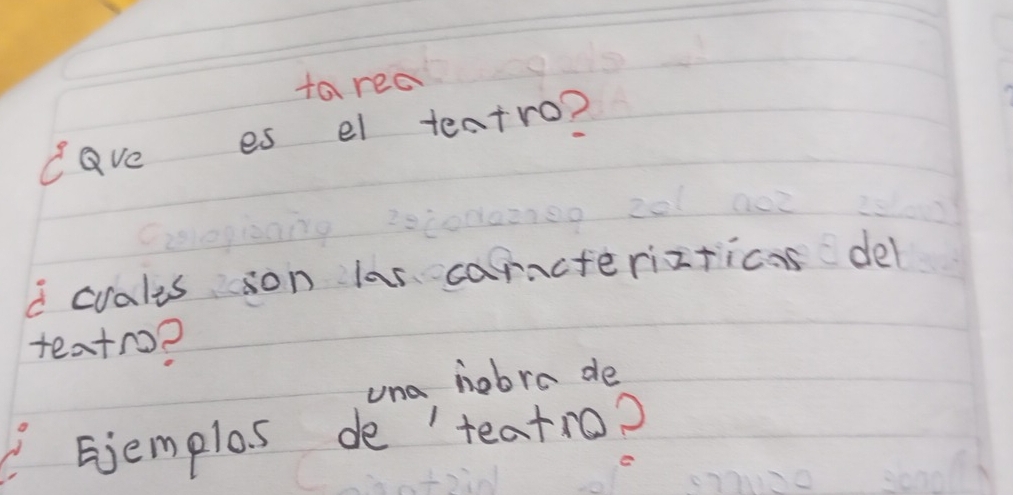 tarea
¿Que es el teatro?
¿cuales son las caracterizticas del
teatro?
una hobra de
¿Ejemplos de teatro?